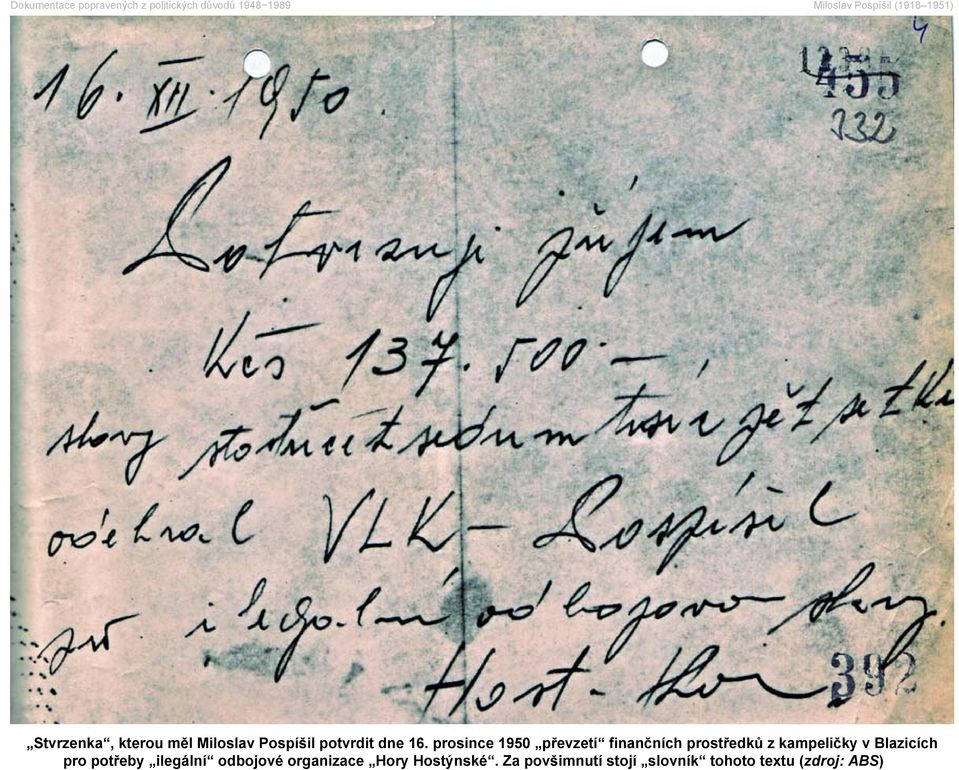 Dokumentace popravených z politických důvodů 1948−1989
Miloslav Pospíšil (1918–1951)
4
16. XII. 1950.
455
332
Potvrzuji příjem
Kčs 137.500.—
slovy stotřicetsedumtisíc pětsetKčs
odebral VLK – Pospíšil
pro ilegální odbojovou
Host-
392
„Stvrzenka“, kterou měl Miloslav Pospíšil potvrdit dne 16. prosince 1950 „převzetí“ finančních prostředků z kampeličky v Blazicích
pro potřeby „ilegální“ odbojové organizace „Hory Hostýnské“. Za povšimnutí stojí „slovník“ tohoto textu (zdroj: ABS)